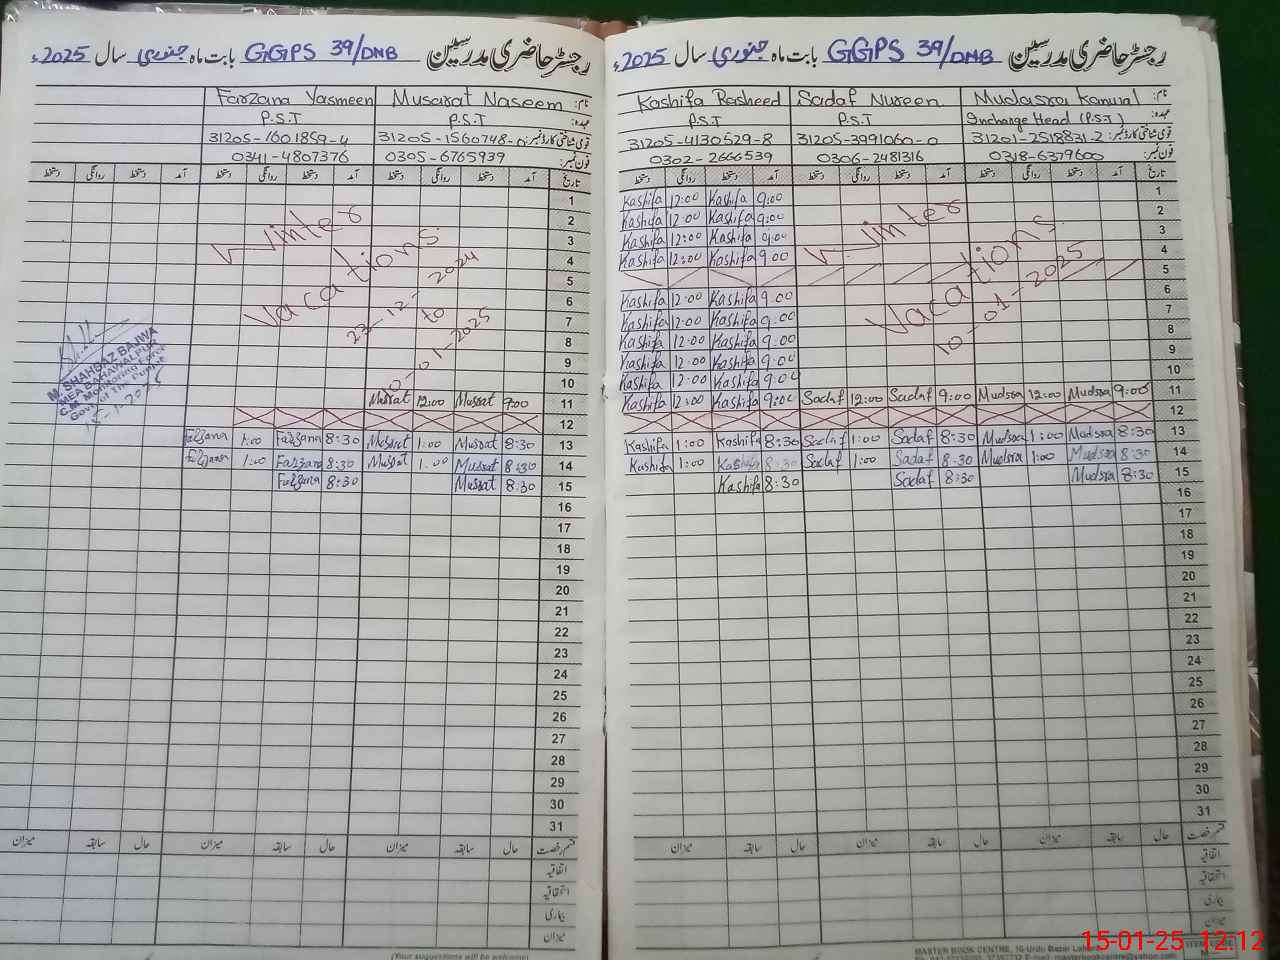 رجسٹر حاضری مدرسین GGPS 39/DNB بابت ماہ جنوری سال 2025ء
نام: Musarat Naseem Farzana Yasmeen
عہدہ: P.S.T P.S.T
قومی شناختی کارڈ نمبر: 31205-1560748-0 31205-1601859-4
فون نمبر: 0305-6765939 0341-4807376
تاریخ آمد دستخط روانگی دستخط آمد دستخط روانگی دستخط آمد دستخط روانگی دستخط
1
2
3
4
5
6
7
8
9
10
Winter
Vacations
23-12-2024
to
10-01-2025
11 9:00 Mussat 12:00 Mussat
12
13 8:30 Mussat 1:00 Mussat 8:30 Farzana 1:00 Farzana
14 8:30 Mussat 1:00 Mussat 8:30 Farzana 1:00 Farzana
15 8:30 Mussat 8:30 Farzana
16
17
18
19
20
21
22
23
24
25
26
27
28
29
30
31
قسم رخصت حال سابقہ میزان حال سابقہ میزان حال سابقہ میزان
اتفاقیہ
استحقاقیہ
بیماری
میزان
M. SHAHBAZ BAJWA
MEA BAHAWALPUR
C.M. Monitoring Force
Govt. of The Punjab
(Your suggestions will be welcome)
رجسٹر حاضری مدرسین GGPS 39/DNB بابت ماہ جنوری سال 2025ء
نام: Mudasra Kanwal Sadaf Nureen Kashifa Rasheed
عہدہ: Incharge Head (P.S.T) P.S.T P.S.T
قومی شناختی کارڈ نمبر: 31201-2518831-2 31205-3991060-0 31205-4130529-8
فون نمبر: 0318-6379600 0306-2481316 0302-2666539
تاریخ آمد دستخط روانگی دستخط آمد دستخط روانگی دستخط آمد دستخط روانگی دستخط
1 9:00 Kashifa 12:00 Kashifa
2 9:00 Kashifa 12:00 Kashifa
3 9:00 Kashifa 12:00 Kashifa
4 9:00 Kashifa 12:00 Kashifa
5
6 9:00 Kashifa 12:00 Kashifa
7 9:00 Kashifa 12:00 Kashifa
8 9:00 Kashifa 12:00 Kashifa
9 9:00 Kashifa 12:00 Kashifa
10 9:00 Kashifa 12:00 Kashifa
Winter
Vacations
10-01-2025
11 9:00 Mudsra 12:00 Mudsra 9:00 Sadaf 12:00 Sadaf 9:00 Kashifa 12:00 Kashifa
12
13 8:30 Mudsra 1:00 Mudsra 8:30 Sadaf 1:00 Sadaf 8:30 Kashifa 1:00 Kashifa
14 8:30 Mudsra 1:00 Mudsra 8:30 Sadaf 1:00 Sadaf 8:30 Kashifa 1:00 Kashifa
15 8:30 Mudsra 8:30 Sadaf 8:30 Kashifa
16
17
18
19
20
21
22
23
24
25
26
27
28
29
30
31
قسم رخصت حال سابقہ میزان حال سابقہ میزان حال سابقہ میزان
اتفاقیہ
استحقاقیہ
بیماری
میزان
MASTER BOOK CENTRE, 16-Urdu Bazar
15-01-25 12:12